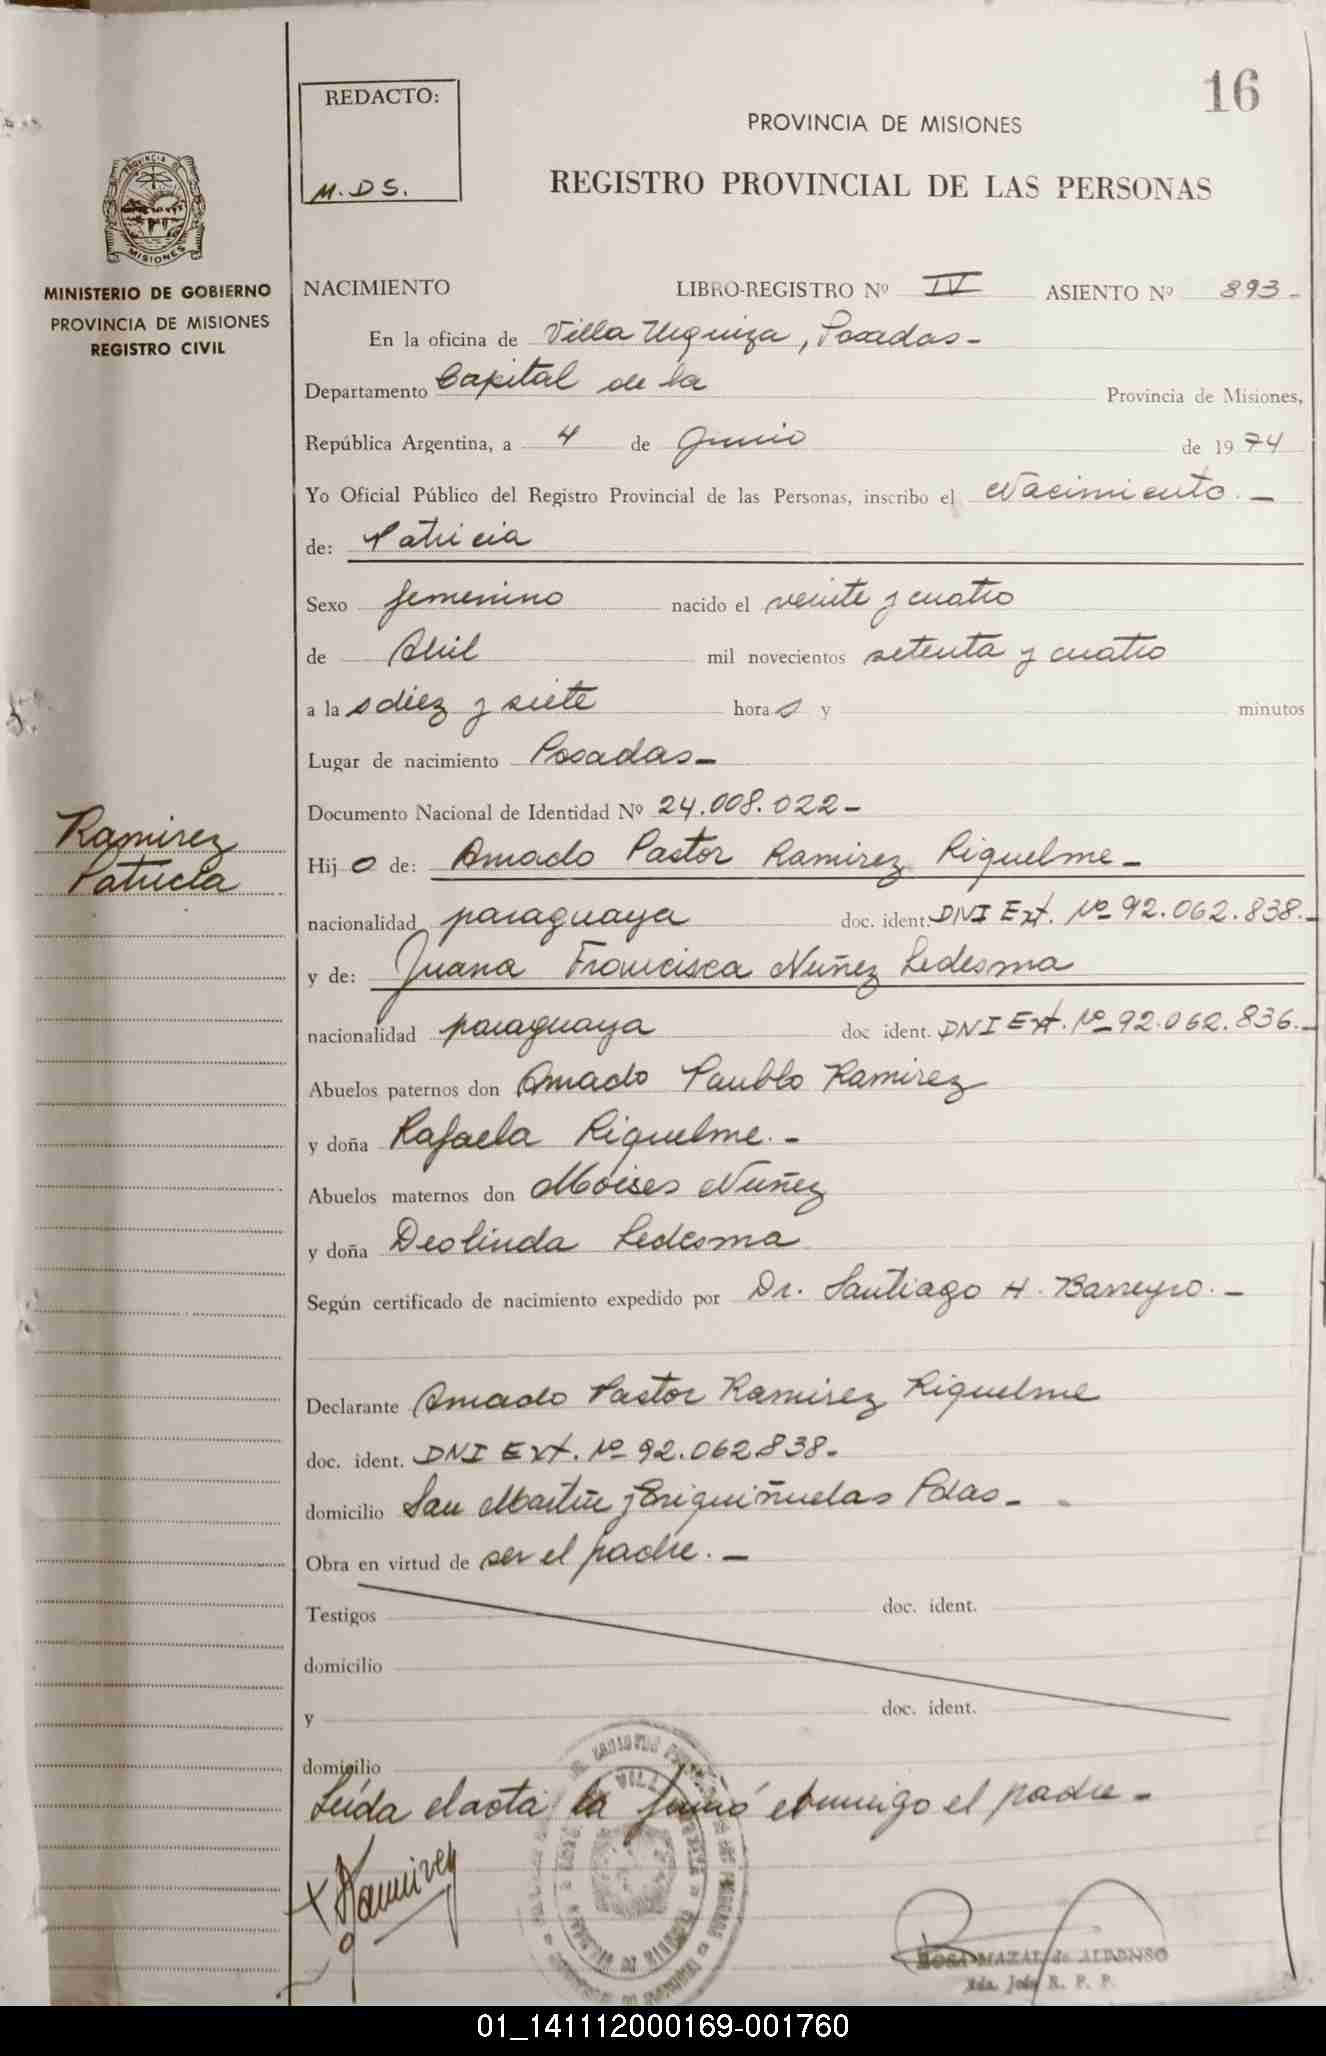 16
REDACTO:
M.D.S.
PROVINCIA DE MISIONES
REGISTRO PROVINCIAL DE LAS PERSONAS
PROVINCIA DE
MISIONES
MINISTERIO DE GOBIERNO
PROVINCIA DE MISIONES
REGISTRO CIVIL
NACIMIENTO LIBRO-REGISTRO Nº IV ASIENTO Nº 893-
En la oficina de Villa Urquiza, Posadas-
Departamento Capital de la Provincia de Misiones,
República Argentina, a 4 de Junio de 1974
Yo Oficial Público del Registro Provincial de las Personas, inscribo el Nacimiento.-
de: Patricia
Sexo femenino nacido el veinte y cuatro
de Abril mil novecientos setenta y cuatro
a las diez y siete horas y minutos
Lugar de nacimiento Posadas-
Documento Nacional de Identidad Nº 24.008.022-
Ramirez
Patricia
Hijo de: Amado Pastor Ramirez Riquelme-
nacionalidad paraguaya doc. ident. DNI Ext. Nº 92.062.838.-
y de: Juana Francisca Nuñez Ledesma
nacionalidad paraguaya doc ident. DNI Ext. Nº 92.062.836.-
Abuelos paternos don Amado Paublo Ramirez
y doña Rafaela Riquelme.-
Abuelos maternos don Moises Nuñez
y doña Deolinda Ledesma
Según certificado de nacimiento expedido por Dr. Santiago H. Barreyro.-
Declarante Amado Pastor Ramirez Riquelme
doc. ident. DNI Ext. Nº 92.062.838-
domicilio San Martin y Briquiñuelas Pdas-
Obra en virtud de ser el padre.-
Testigos doc. ident.
domicilio
y doc. ident.
domicilio
Leída el acta la firmó conmigo el padre-
Ramirez
ROSA MAZAL de ALFONSO
R. P. P.
01_141112000169-001760